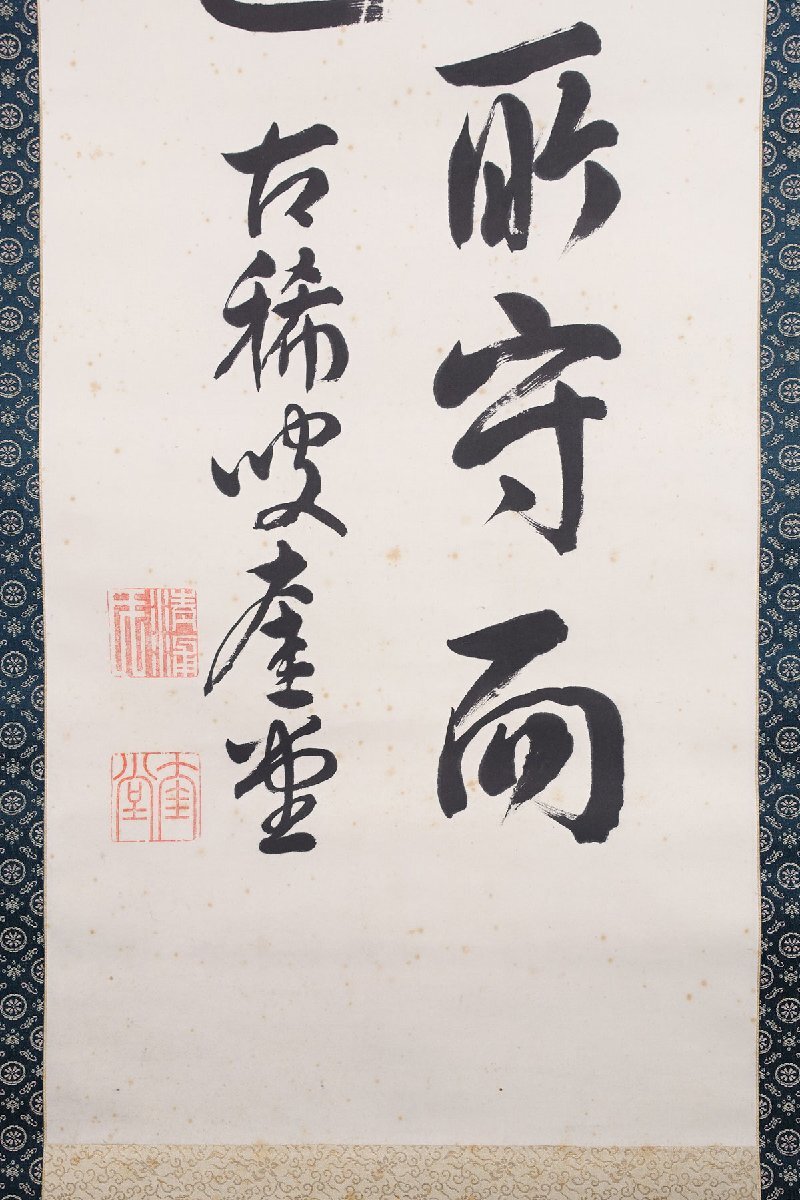 所守而
古稀叟奎堂
奎堂